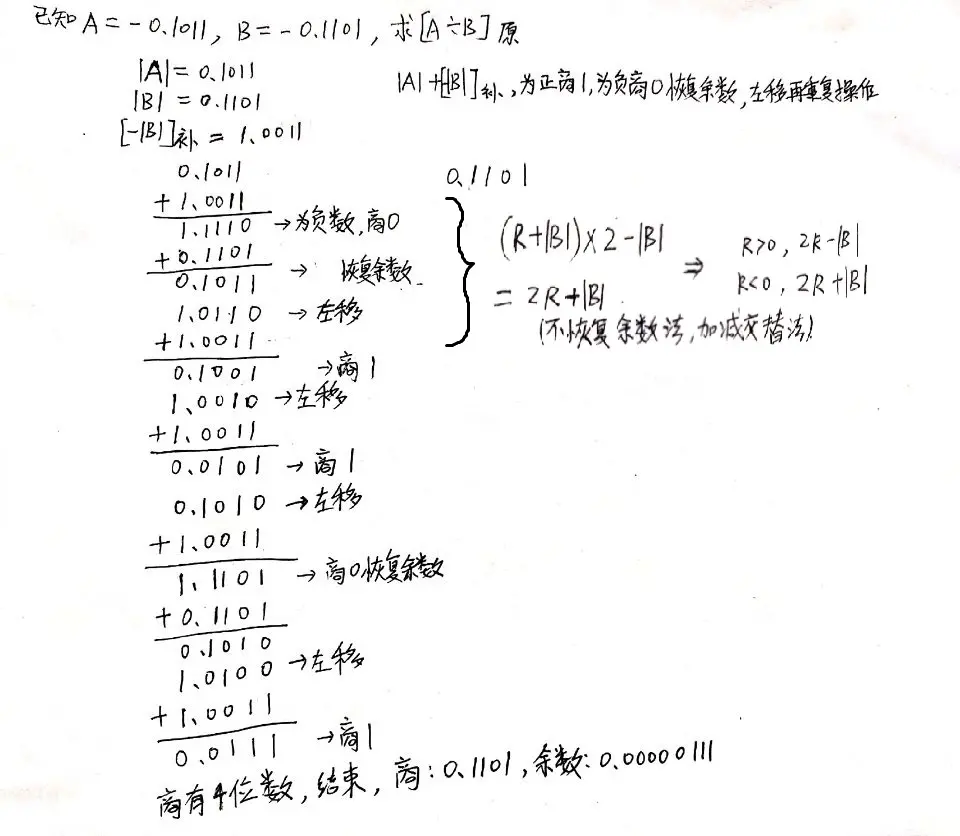 已知 A = -0.1011, B = -0.1101, 求[A÷B]原
|A| = 0.1011
|B| = 0.1101
[-|B|]补 = 1.0011
|A|+[|B|]补, 为正商1, 为负商0恢复余数, 左移再重复操作
0.1011
+1.0011
1.1110 →为负数, 商0
+0.1101
0.1011 → 恢复余数
1.0110 →左移
+1.0011
0.1001 →商1
1.0010 →左移
+1.0011
0.0101 →商1
0.1010 →左移
+1.0011
1.1101 →商0恢复余数
+0.1101
0.1010
1.0100 →左移
+1.0011
0.0111 →商1
商有4位数, 结束, 商: 0.1101, 余数: 0.00000111
0.1101
(R+|B|)×2-|B|
= 2R+|B|
(不恢复余数法, 加减交替法)
⇒ R>0, 2R-|B|
R<0, 2R+|B|